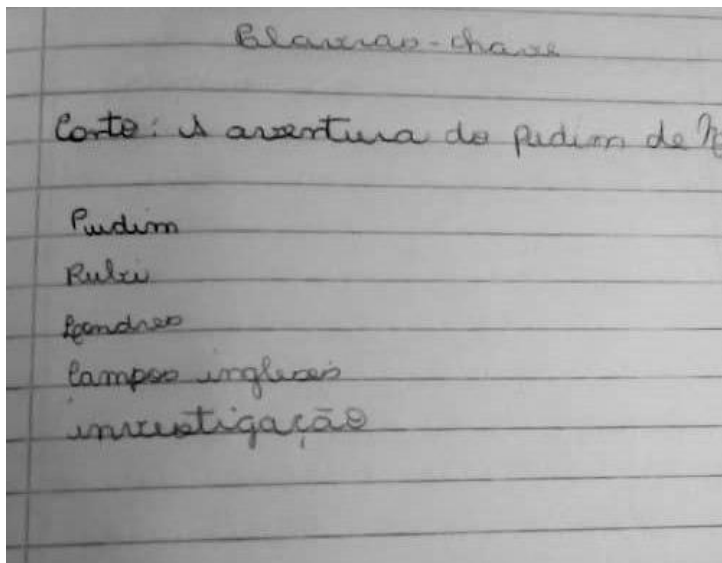 Palavras-chave
Conto: A aventura do pudim de N
Pudim
Rubi
Londres
Campos ingleses
investigação